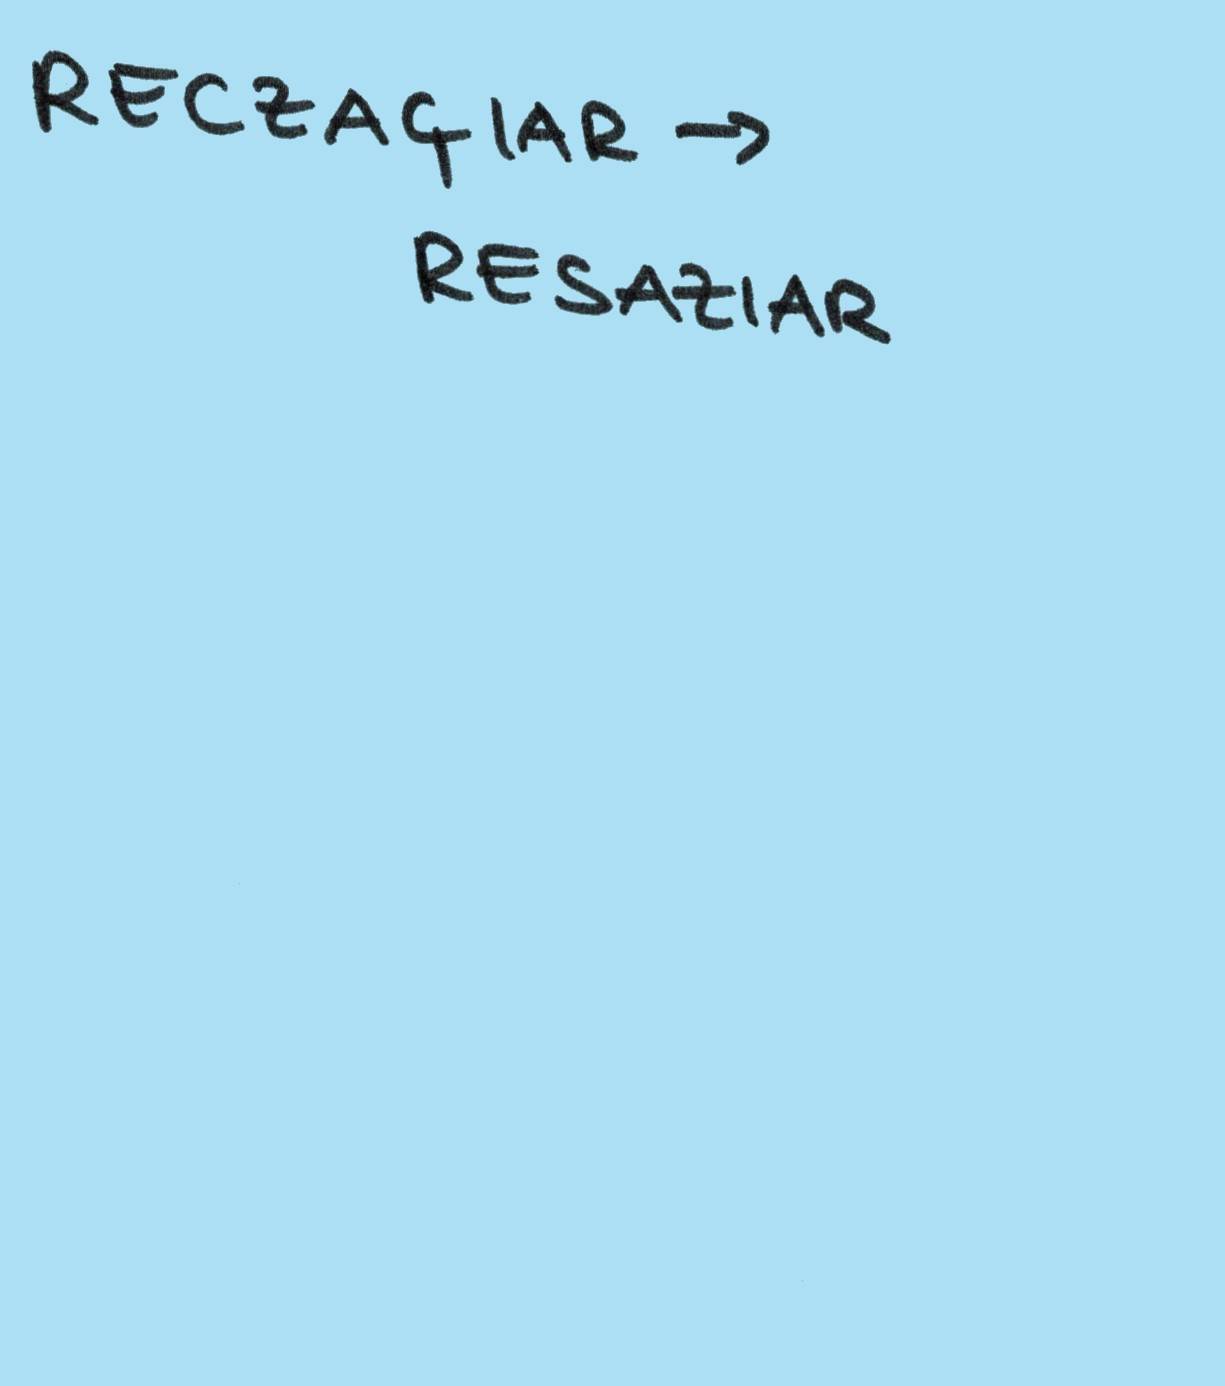 RECZAÇIAR →
RESAZIAR